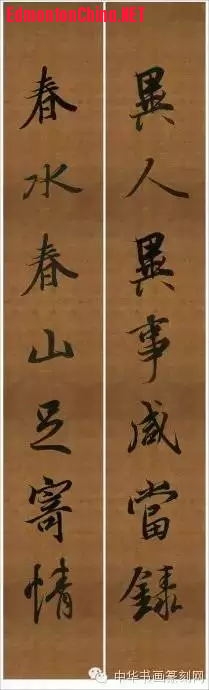 EdmontonChina.NET
異人異事咸當録
春水春山足寄情
中华书画篆刻网